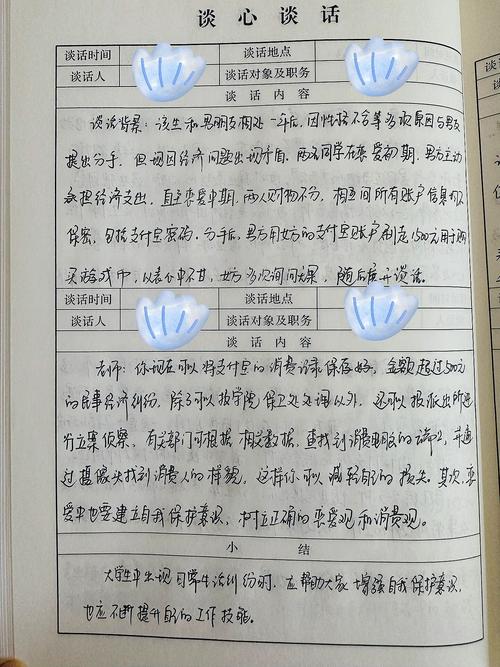 谈心谈话
谈话时间 谈话地点
谈话人 谈话对象及职务
谈 话 内 容
谈话背景：该生和男朋友相处一年后，因性格不合等多项原因与男友
提出分手，但因经济问题出现矛盾，两名同学在恋爱初期，男方主动
承担经济支出，直至恋爱中期，两人财物不分，相互间所有账户信息均不
保密，包括支付宝密码。分手后，男方用女方的支付宝账户制造1500元用于购
买游戏币，以表心中不甘，女方多次询问无果，随后展开谈话。
谈话时间 谈话地点
谈话人 谈话对象及职务
谈 话 内 容
老师：你现在可以将支付宝的消费记录保存好，金额超过500元
的民事经济纠纷，除了可以按学院保卫处处理以外，还可以报派出所进
行立案侦察，有关部门可根据相关数据，查找到消费电脑的IP，并通
过摄像头找到消费人的样貌，这样你可以减轻自己的损失。其次，恋
爱中也要建立自我保护意识，树立正确的恋爱观和消费观。
小 结
大学生中出现日常生活纠纷时，应帮助大家增强自我保护意识，
也应不断提升自己的工作技能。